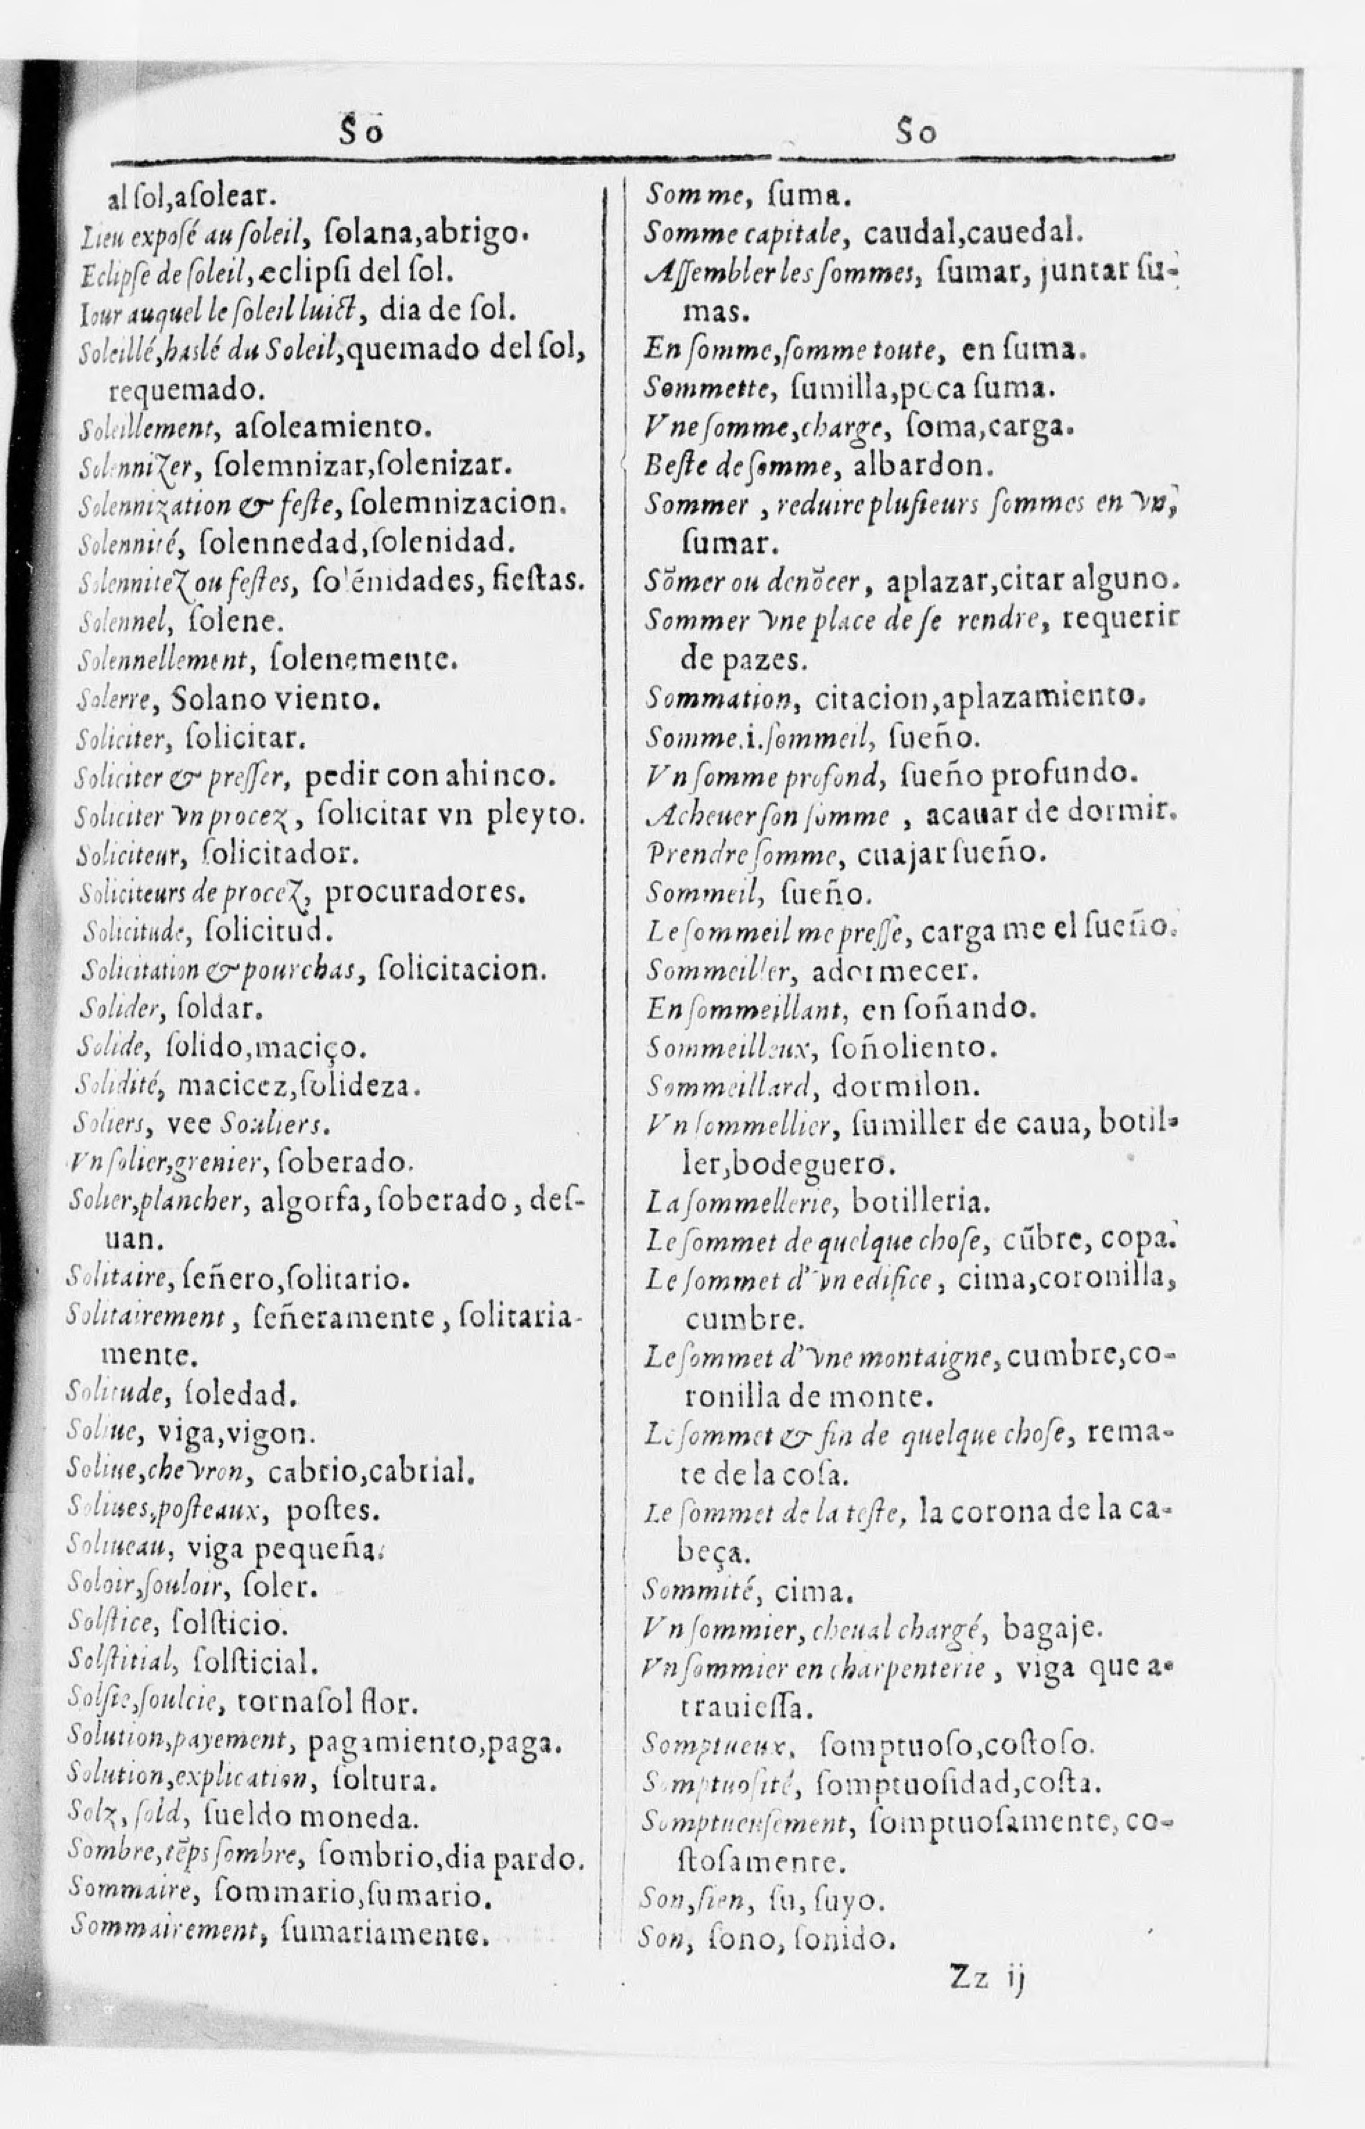 So
al ſol,aſolear.
Lieu expoſé au ſoleil, ſolana,abrigo.
Eclipſe de ſoleil, eclipſi del ſol.
Iour auquel le ſoleil luict, dia de ſol.
Soleillé,haslé du Soleil,quemado del ſol,
requemado.
Soleillement, aſoleamiento.
Solennizer, ſolemnizar,ſolenizar.
Solennization & feſte, ſolemnizacion.
Solennité, ſolennedad,ſolenidad.
Solennitez ou feſtes, ſolẽnidades, fieſtas.
Solennel, ſolene.
Solennellement, ſolenemente.
Solerre, Solano viento.
Soliciter, ſolicitar.
Soliciter & preſſer, pedir con ahinco.
Soliciter vn procez, ſolicitar vn pleyto.
Soliciteur, ſolicitador.
Soliciteurs de procez, procuradores.
Solicitude, ſolicitud.
Solicitation & pourchas, ſolicitacion.
Solider, ſoldar.
Solide, ſolido,maciço.
Solidité, macicez,ſolideza.
Soliers, vee Souliers.
Vn ſolier,grenier, ſoberado.
Solier,plancher, algorfa, ſoberado, deſ-
uan.
Solitaire, ſeñero,ſolitario.
Solitairement, ſeñeramente, ſolitaria-
mente.
Solitude, ſoledad.
Soliue, viga,vigon.
Soliue,chevron, cabrio,cabrial.
Soliues,poſteaux, poſtes.
Soliueau, viga pequeña.
Soloir,ſouloir, ſoler.
Solſtice, ſolſticio.
Solſtitial, ſolſticial.
Solſie,ſoulcie, tornaſol flor.
Solution,payement, pagamiento,paga.
Solution,explication, ſoltura.
Solz, ſold, ſueldo moneda.
Sombre,tẽps ſombre, ſombrio,dia pardo.
Sommaire, ſommario,ſumario.
Sommairement, ſumariamente.
So
Somme, ſuma.
Somme capitale, caudal,cauedal.
Aſſembler les ſommes, ſumar, juntar ſu-
mas.
En ſomme,ſomme toute, en ſuma.
Sommette, ſumilla,poca ſuma.
Vne ſomme,charge, ſoma,carga.
Beſte de ſomme, albardon.
Sommer, reduire pluſieurs ſommes en vn,
ſumar.
Sõmer ou denõcer, aplazar,citar alguno.
Sommer vne place de ſe rendre, requerir
de pazes.
Sommation, citacion,aplazamiento.
Somme.i.ſommeil, ſueño.
Vn ſomme profond, ſueño profundo.
Acheuer ſon ſomme, acauar de dormir.
Prendre ſomme, cuajar ſueño.
Sommeil, ſueño.
Le ſommeil me preſſe, carga me el ſueño.
Sommeiller, adormecer.
En ſommeillant, en ſoñando.
Sommeilleux, ſoñoliento.
Sommeillard, dormilon.
Vn ſommellier, ſumiller de caua, botil-
ler,bodeguero.
La ſommellerie, botilleria.
Le ſommet de quelque choſe, cũbre, copa.
Le ſommet d'vn edifice, cima,coronilla,
cumbre.
Le ſommet d'vne montaigne,cumbre,co-
ronilla de monte.
Le ſommet & fin de quelque choſe, rema-
te de la coſa.
Le ſommet de la teſte, la corona de la ca-
beça.
Sommité, cima.
Vn ſommier, cheual chargé, bagaje.
Vn ſommier en charpenterie, viga que a-
trauieſſa.
Somptueux, ſomptuoſo,coſtoſo.
Somptuoſité, ſomptuoſidad,coſta.
Somptueuſement, ſomptuoſamente, co-
ſtoſamente.
Son,ſien, ſu, ſuyo.
Son, ſono, ſonido.
Zz ij